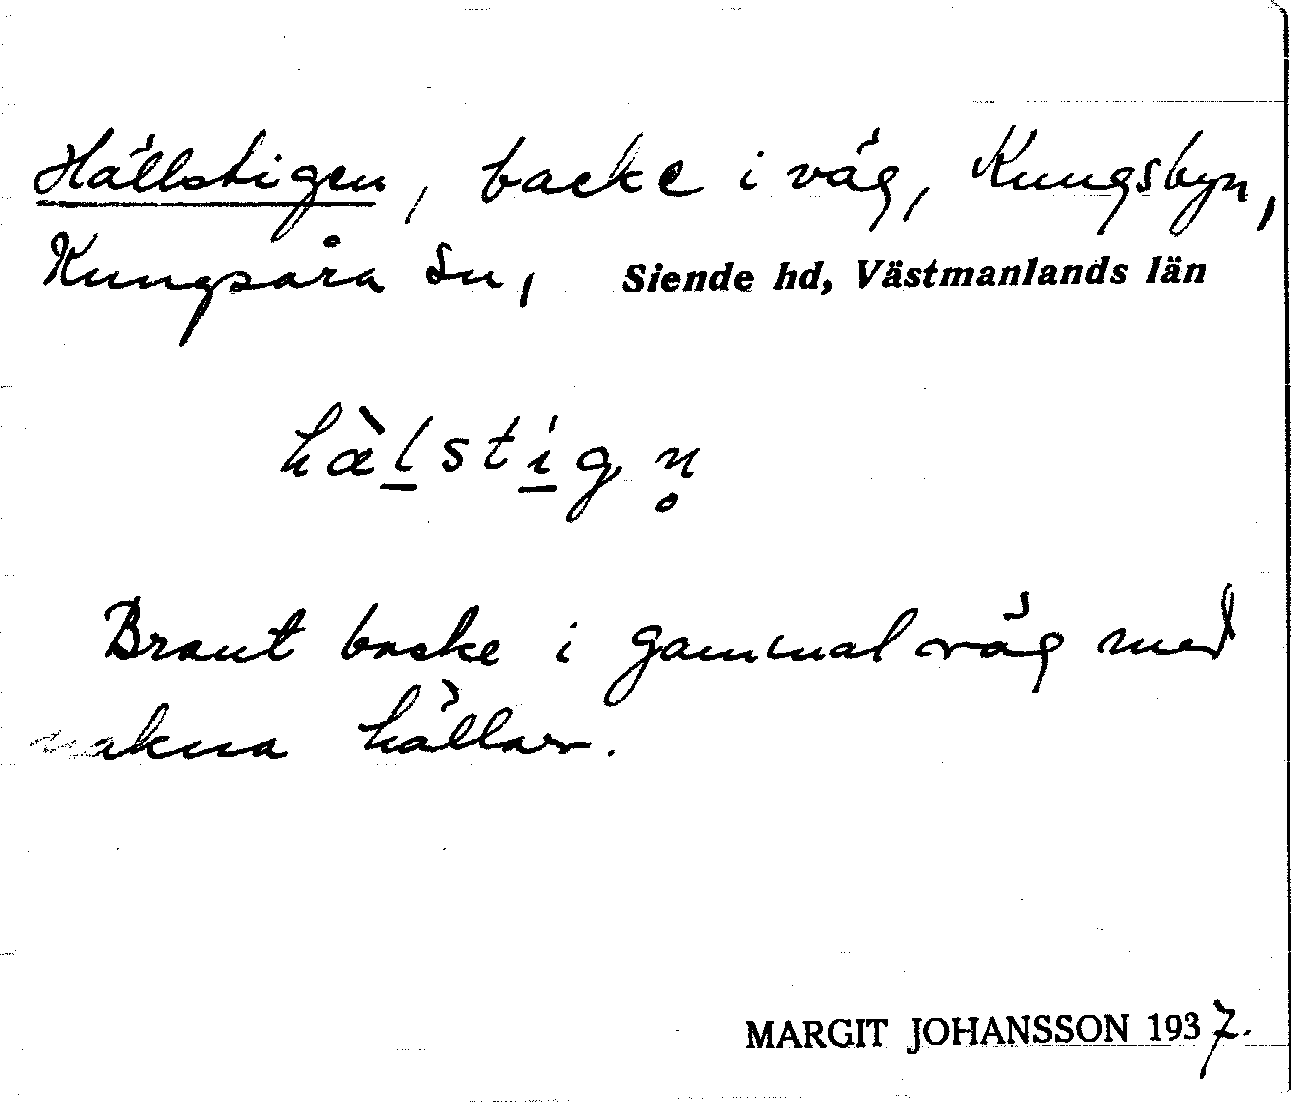 Hällstigen, backe i väg, Kungsbyn,
Kungsåra sn, Siende hd, Västmanlands län
hæ̀lstign̥
Brant backe i gammal väg med
nakna hällar.
MARGIT JOHANSSON 1937.